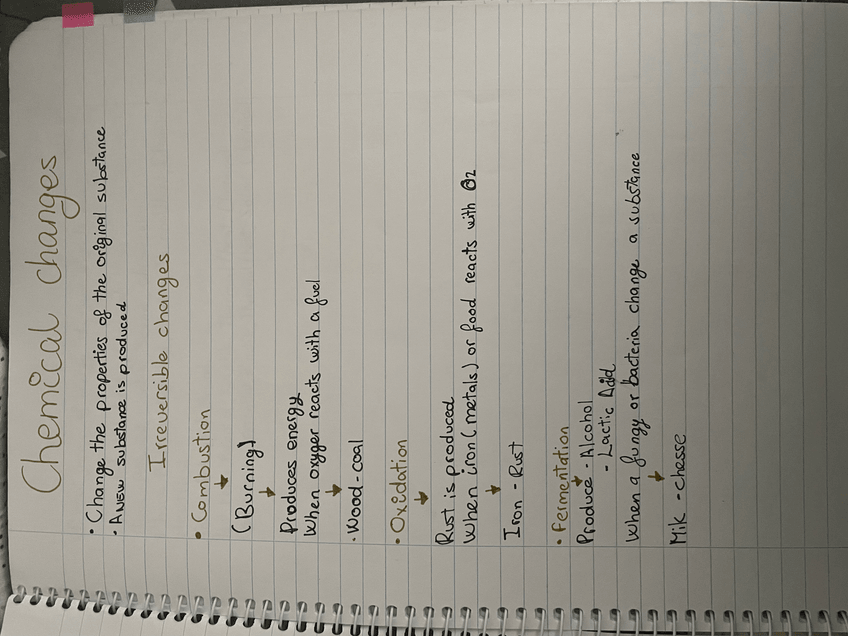 Chemical changes
• Change the properties of the original substance
• A NEW substance is produced
Irreversible changes
• Combustion
(Burning)
Produces energy
When oxyger reacts with a fuel
• Wood - coal
• Oxidation
Rust is produced
When iron (metals) or food reacts with O2
Iron - Rust
• Fermentation
Produce - Alcohol
- Lactic Acid
When a fungy or bacteria change a substance
Mik - chesse